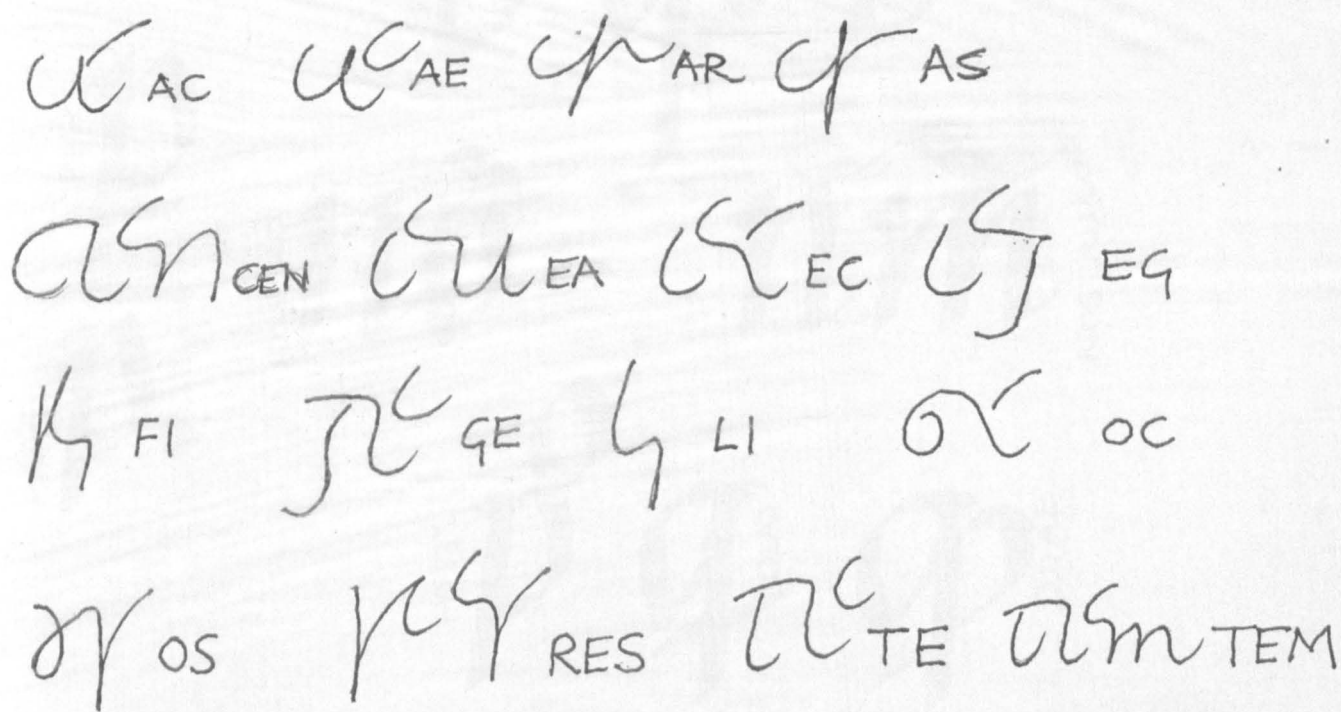 AC AE AR AS
CEN EA EC EG
FI GE LI OC
OS RES TE TEM